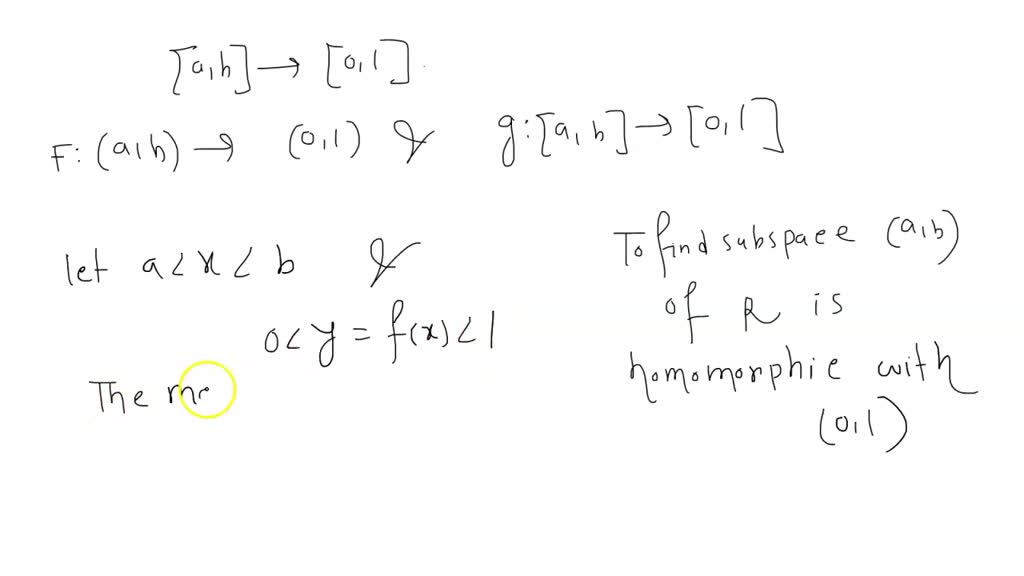 [a,b] → [0,1]
F: (a,b) → (0,1) & g: [a,b] → [0,1]
let a < x < b &
0 < y = f(x) < 1
The me
To find subspace (a,b)
of R is
homomorphic with
(0,1)